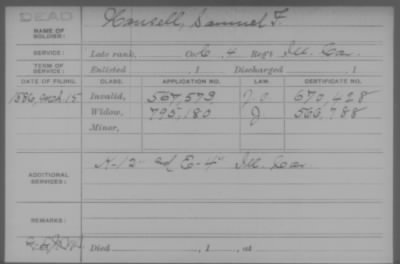 DEAD
NAME OF SOLDIER: Hansell, Samuel F.
SERVICE: Late rank, Co. C, 4 Reg't Ill. Cav.
TERM OF SERVICE: Enlisted , 1 Discharged , 1
DATE OF FILING. CLASS. APPLICATION NO. LAW. CERTIFICATE NO.
1886, Mch. 15 Invalid, 567,573 670,428
Widow, 795,180 566,788
Minor,
ADDITIONAL SERVICES: K-12 and E-4 Ill. Cav.
REMARKS:
Died , 1 , at